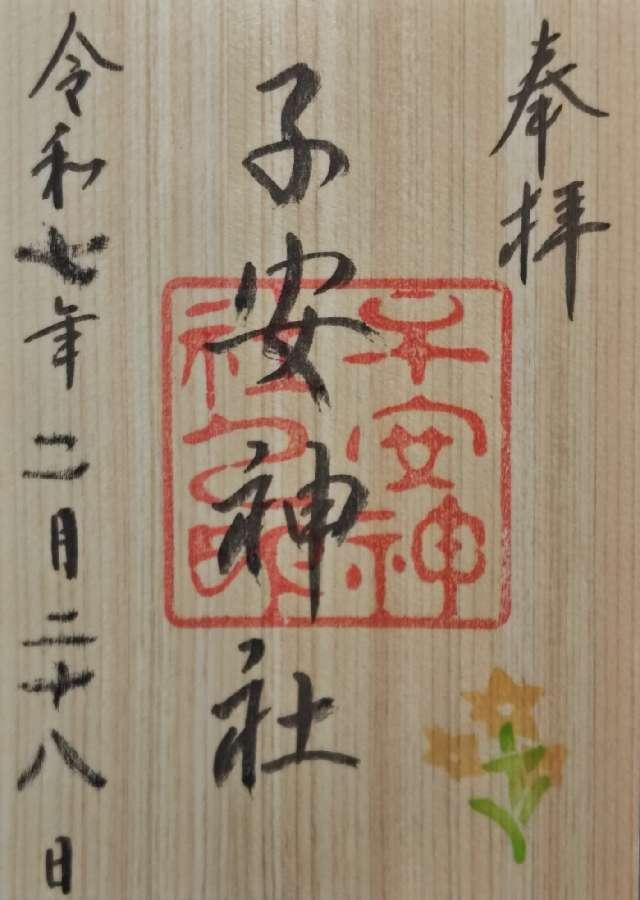 奉拝
子安神社
令和七年二月二十八日
子安神
社